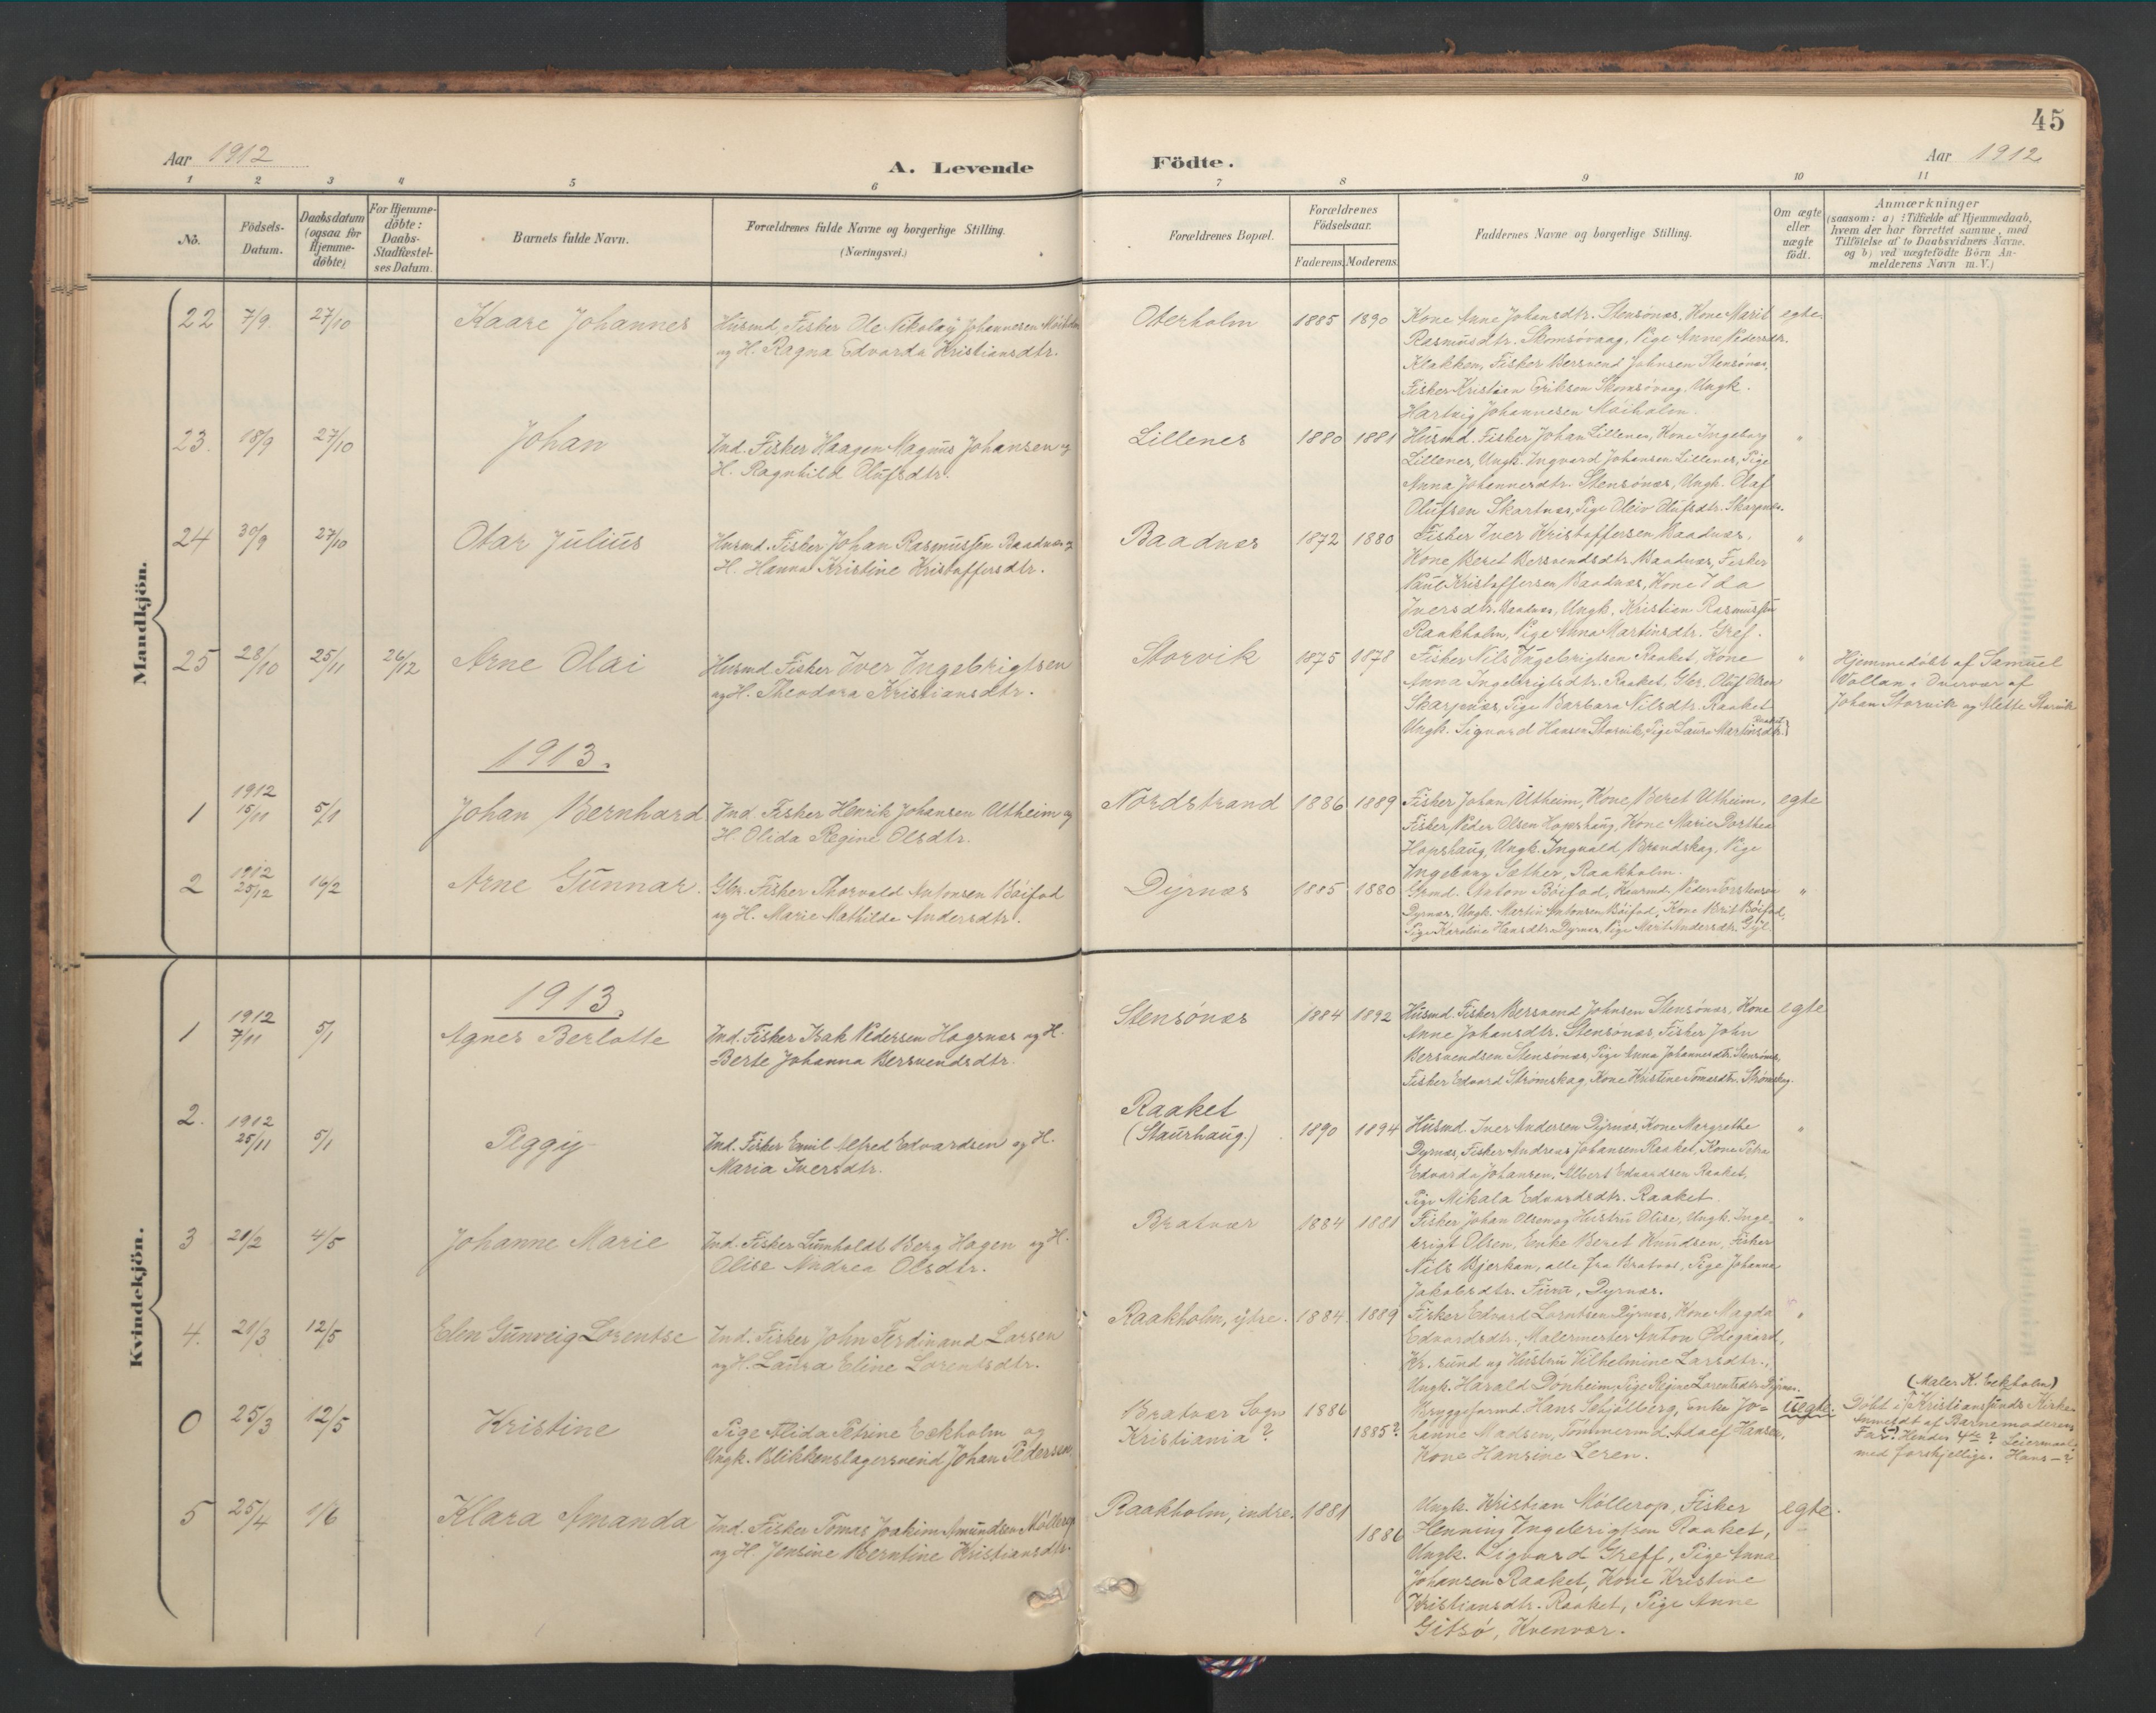 45
Aar 1912
A. Levende Födte.
Aar 1912
1 2 3 4 5 6 7 8 9 10 11
No.
Födsels-Datum.
Daabsdatum (ogsaa for Hjemme-döbte)
For Hjemme-döbte: Daabs-Stadfæstel-ses Datum.
Barnets fulde Navn.
Forældrenes fulde Navne og borgerlige Stilling.
(Næringsvei.)
Forældrenes Bopæl.
Forældrenes Födselsaar.
Faderens. Moderens.
Faddernes Navne og borgerlige Stilling.
Om ægte eller uægte födt.
Anmærkninger
(saasom: a) i Tilfælde af Hjemmedaab,
hvem der har forrettet samme, med
Tilföielse af to Daabsvidners Navne.
og b) ved uægtefödte Börn An-
melderens Navn m.V.)
Mandkjön.
22 7/9 27/10 Kaare Johannes
Husmd. Fisker Ole Nikolay Johannesen
og H. Ragna Edvarda Kristiansdtr.
Oterholm 1885 1890
Kone Anne Johansdtr. Stensönes, Kone Marit
Rasmusdtr. Skomsövaag, Pige Anne Pedersdtr.
Klakken, Fisker Bersvend Johnsen Stensönæs,
Fisker Kristian Eriksen Skomsövaag, Ungk.
Hartvig Johannesen Möiholm.
egte.
23. 18/9 27/10 Johan
Ind. Fisker Haagen Magnus Johansen og
H. Ragnhild Olufsdtr.
Lillenes 1880 1881
Husmd. Fisker Johan Lillenes, Kone Ingeborg
Lillenes, Ungk. Ingvard Johansen Lillenes, Pige
Anna Johannesdtr. Stensönæs, Ungk. Olaf
Olufsen Skartnæs, Pige Oleiv Olufsdtr. Skarpnæs.
"
24 30/9 27/10 Otar Julius
Husmd. Fisker Johan Rasmussen Baadnæs og
H. Hanna Kristine Kristoffersdtr.
Baadnæs 1872 1880
Fisker Iver Kristoffersen Baadnæs,
Kone Beret Bersvendsdtr. Baadnæs, Fisker
Paul Kristoffersen Baadnæs, Kone Ida
Iversdtr. Baadnæs, Ungk. Kristian Rasmussen
Raakholm, Pige Anna Martinsdtr. Gref.
"
25 28/10 25/11 26/12 Arne Olai
Husmd. Fisker Iver Ingebrigtsen
og H. Theodora Kristiansdtr.
Storvik 1875 1878
Fisker Nils Ingebrigtsen Raaket, Kone
Anna Ingebrigtsdtr. Raaket, Gbr. Oluf Olsen
Skarpnæs, Pige Barbara Nilsdtr. Raaket
Ungk. Sigvard Hansen Storvik, Pige Laura Martinsdtr. Raaket
"
Hjemmedöbt af Samuel
Vollan i Overvær af
Johan Storvik og Mette Storvik
1913.
1 1912 15/11 5/1 Johan Bernhard
Ind. Fisker Henrik Johansen Utheim og
H. Olida Regine Olsdtr.
Nordstrand 1886 1889
Fisker Johan Utheim, Kone Beret Utheim,
Fisker Peder Olsen Hopshaug, Kone Marie Dorthea
Hopshaug, Ungk. Ingvald Brandskag, Pige
Ingeborg Sæther, Raakholm.
egte
2 1912 25/12 16/2 Arne Gunnar.
Gbr. Fisker Thorvald Antonsen Böifod
og H. Marie Mathilde Andersdtr.
Dyrnæs 1885 1880
Grmd. Anton Böifod, Peder Torstensen
Dyrnæs, Ungk. Martin Antonsen Böifod, Kone Brit Böifod,
Pige Karoline Hansdtr. Dyrnæs, Pige Marit Andersdtr.
"
Kvindekjön.
1913.
1 1912 7/11 5/1 Agnes Berlotte
Ind. Fisker Isak Pedersen Hagsnæs og H.
Berte Johanna Bersvendsdtr.
Stensönæs 1884 1892
Husmd. Fisker Bersvend Johnsen Stensönæs, Kone
Anne Johansdtr. Stensönæs, Fisker John
Bersvendsen Stensönæs, Pige Anna Johannesdtr. Stensönæs,
Fisker Edvard Strömskag, Kone Kristine Tomasdtr. Strömskag.
egte
2. 1912 25/11 5/1 Peggy
Ind. Fisker Emil Alfred Edvardsen og H.
Maria Iversdtr.
Raaket
(Staurhaug.) 1890 1894
Husmd. Iver Andersen Dyrnæs, Kone Margrethe
Dyrnæs, Fisker Andreas Johansen Raaket, Kone Petra
Edvarda Johansen, Albert Edvardsen Raaket,
Pige Mikala Edvardsdtr. Raaket.
"
3 20/2 4/5 Johanne Marie
Ind. Fisker Lumholdt Berg Hagen og H.
Olise Andrea Olsdtr.
Bratvær 1884 1881
Fisker Johan Olsen og Hustru Olise, Ungk. Inge-
brigt Olsen, Enke Beret Knudsen, Fisker
Nils Bjerkan, alle fra Bratvær, Pige Johanne
Jakobsdtr. Furu, Dyrnæs.
"
4. 20/3 12/5 Elen Gunveig Lorentse
Ind. Fisker John Ferdinand Larsen
og H. Laura Eline Lorentsdtr.
Raakholm, ytre. 1884. 1889
Fisker Edvard Lorentsen Dyrnæs, Kone Magda
Edvardsdtr., Malermester Anton Ödegaard,
Kr.sund og Hustru Vilhelmine Larsdtr.,
Ungk. Harald Dönheim, Pige Regine Lorentsdtr. Dyrnæs.
"
0 25/3 12/5 Kristine
Pige Alida Petrine Eekholm og
Ungk. Blikkenslagersvend Johan Pedersen
Bratvær Sogn 1886
Kristiania? 1885?
Bryggeformd. Hans Schjölberg, Enke Jo-
hanne Madsen, Tömmermd. Adolf Hansen,
Kone Hansine Leren.
uegte.
(Maler K. Eekholm)
Döbt i Kristianssunds Kirke.
Anmeldt af Barnemoderens
Far. Hendes 4de? Leiermaal
med forskjellige. Hans –?
5 25/4 1/6 Klara Amanda
Ind. Fisker Tomas Joakim Amundsen Möllerop
og H. Jensine Berntine Kristiansdtr.
Raakholm, indre. 1881 1886
Ungk. Kristian Möllerop, Fisker
Henning Ingebrigtsen Raaket,
Ungk. Sigvard Greff, Pige Anna
Johansen Raaket, Kone Kristine
Kristiansdtr. Raaket, Pige Anne
Gitsö, Kvenvær.
egte.